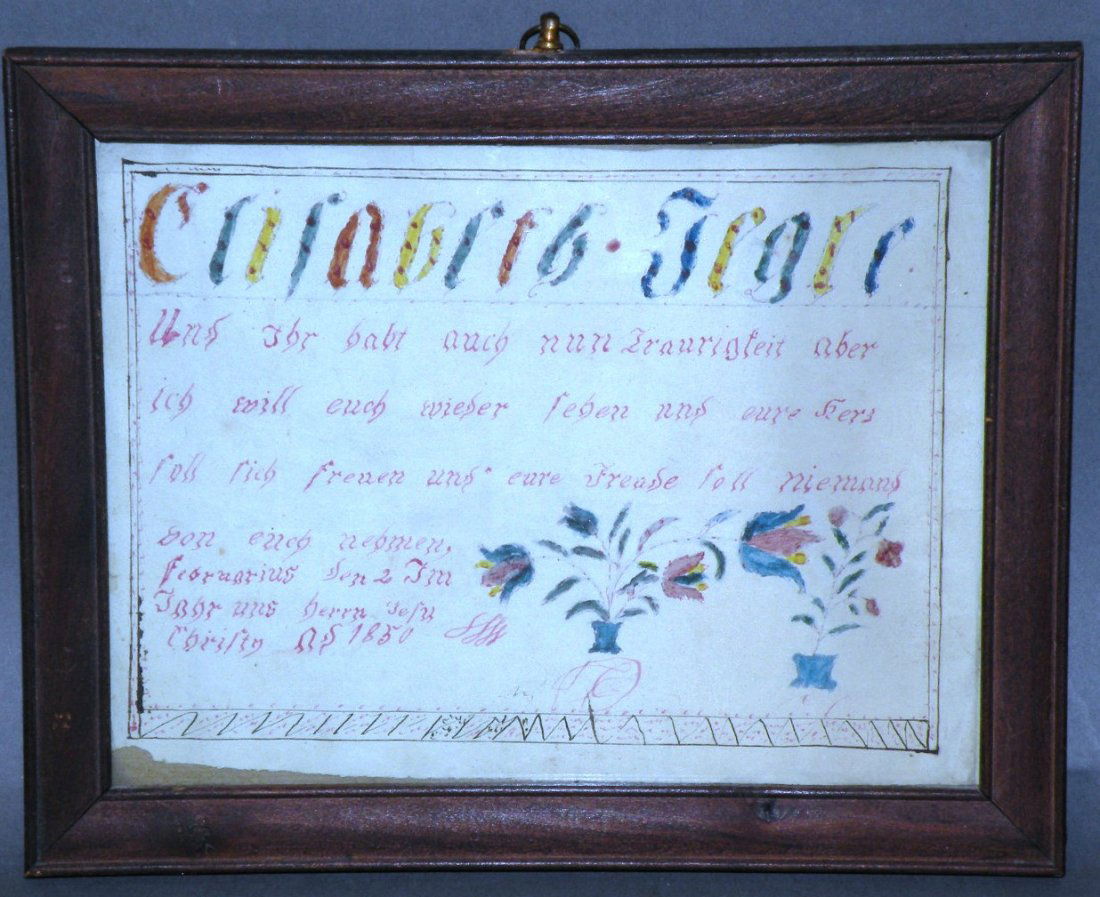 Elisabeth · Jegle
Und Ihr habt auch nun Traurigkeit aber
ich will euch wieder sehen und eure Herz
soll sich freuen und eure Freude soll niemand
von euch nehmen,
Februarius den 2 Im
Jahr uns herrn Jesu
Christy AD 1850